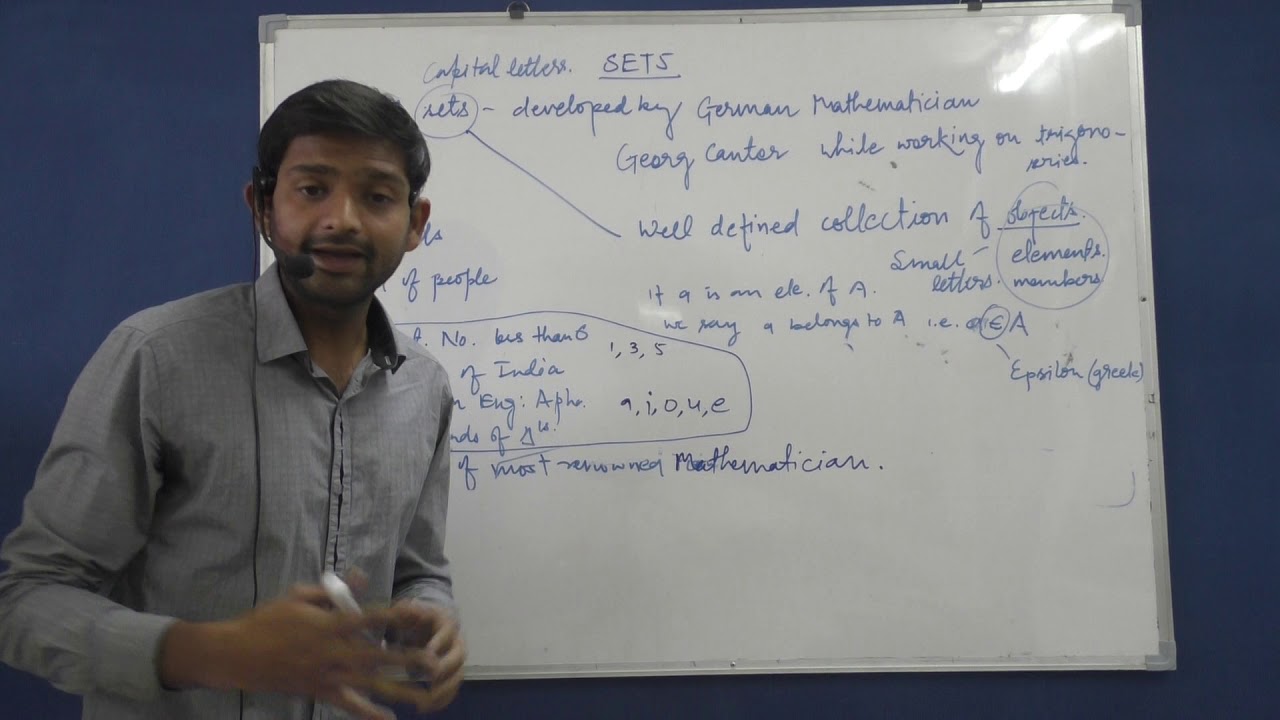 Capital letters. SETS
sets - developed by German Mathematician
Georg Cantor while working on trigono-
series.
Well defined collection of objects.
Small elements.
letters. members
of people
If a is an ele. of A.
we say a belongs to A i.e. a ∈ A
Epsilon (greek)
No. less than 6 1, 3, 5
of India
Eng: Alpha. a, i, o, u, e
nds of Δls.
of most renowned Mathematician.